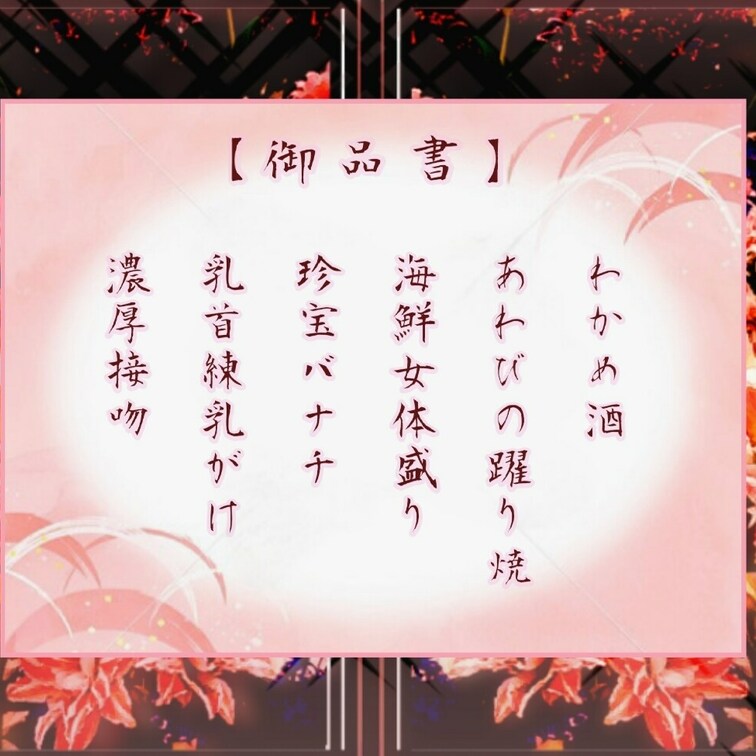 【御品書】
わかめ酒
あわびの躍り焼
海鮮女体盛り
珍宝バナナ
乳首練乳がけ
濃厚接吻